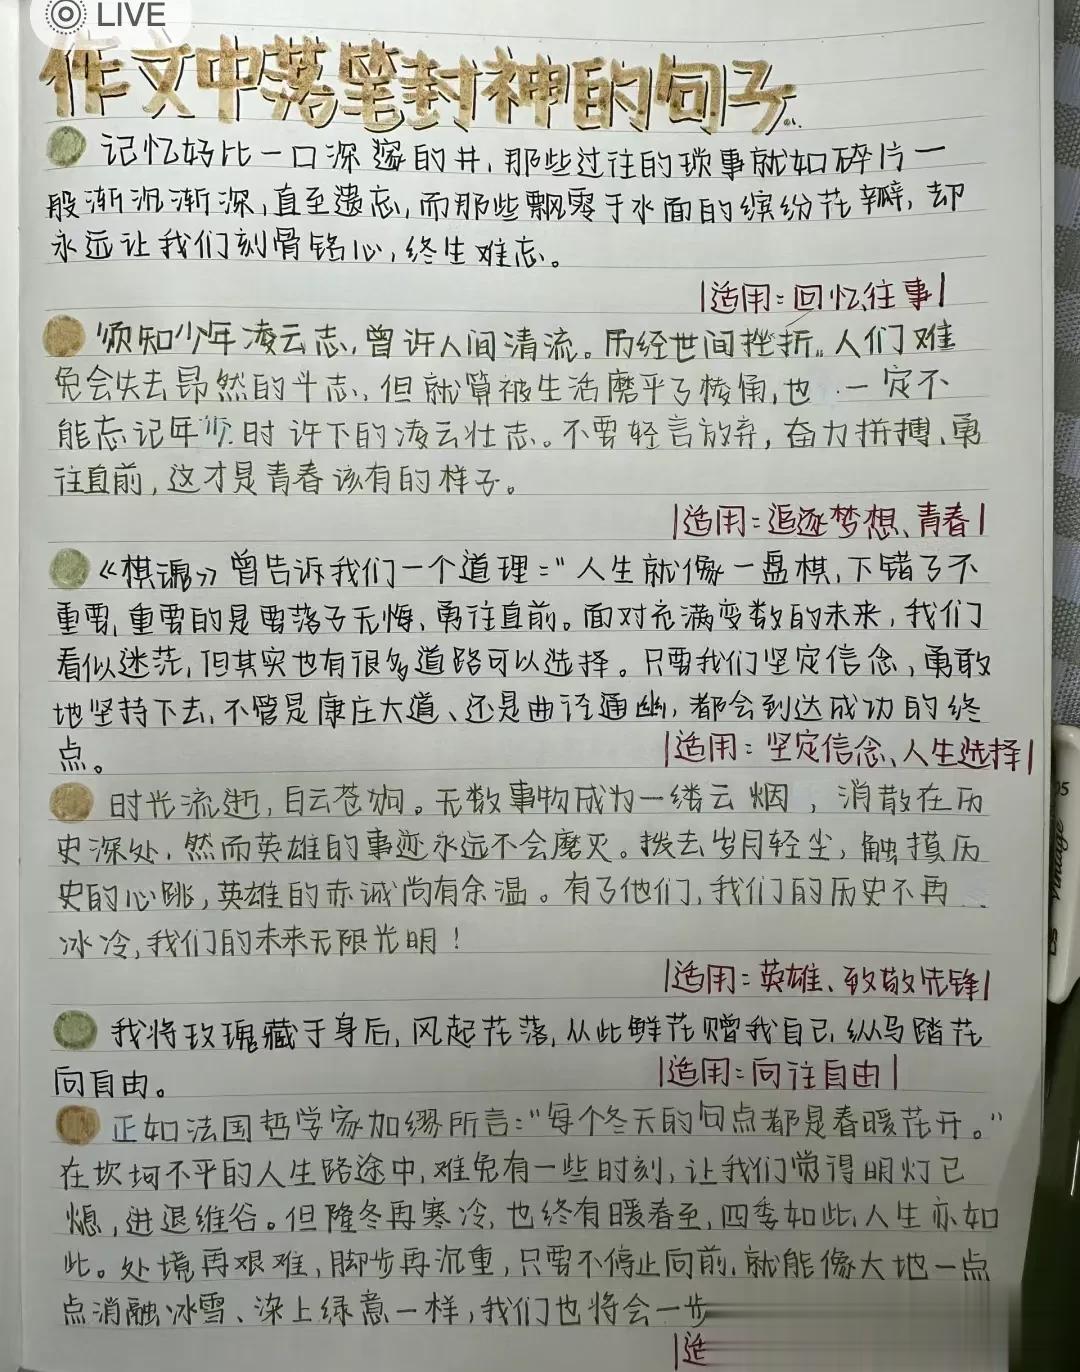 LIVE
作文中落笔封神的句子
记忆好比一口深邃的井,那些过往的琐事就如碎片一
般渐沉渐深,直至遗忘,而那些飘零于水面的缤纷花瓣,却
永远让我们刻骨铭心,终生难忘。
|适用:回忆往事|
须知少年凌云志,曾许人间清流。历经世间挫折,人们难
免会失去昂然的斗志,但就算被生活磨平了棱角,也一定不
能忘记年少时许下的凌云壮志。不要轻言放弃,奋力拼搏、勇
往直前,这才是青春该有的样子。
|适用:追逐梦想、青春|
《棋魂》曾告诉我们一个道理:"人生就像一盘棋,下错了不
重要,重要的是要落子无悔、勇往直前。面对充满变数的未来,我们
看似迷茫,但其实也有很多道路可以选择。只要我们坚定信念,勇敢
地坚持下去,不管是康庄大道、还是曲径通幽,都会到达成功的终
点。
|适用:坚定信念、人生选择|
时光流逝,白云苍狗。无数事物成为一缕云烟,消散在历
史深处,然而英雄的事迹永远不会磨灭。拨去岁月轻尘,触摸历
史的心跳,英雄的赤诚尚有余温。有了他们,我们的历史不再
冰冷,我们的未来无限光明!
|适用:英雄、致敬先锋|
我将玫瑰藏于身后,风起花落,从此鲜花赠我自己,纵马踏花
向自由。
|适用:向往自由|
正如法国哲学家加缪所言:"每个冬天的句点都是春暖花开。"
在坎坷不平的人生路途中,难免有一些时刻,让我们觉得明灯已
熄,进退维谷。但隆冬再寒冷,也终有暖春至,四季如此,人生亦如
此。处境再艰难,脚步再沉重,只要不停止向前,就能像大地一点
点消融冰雪、染上绿意一样,我们也将会一步
|适
05
Vintage